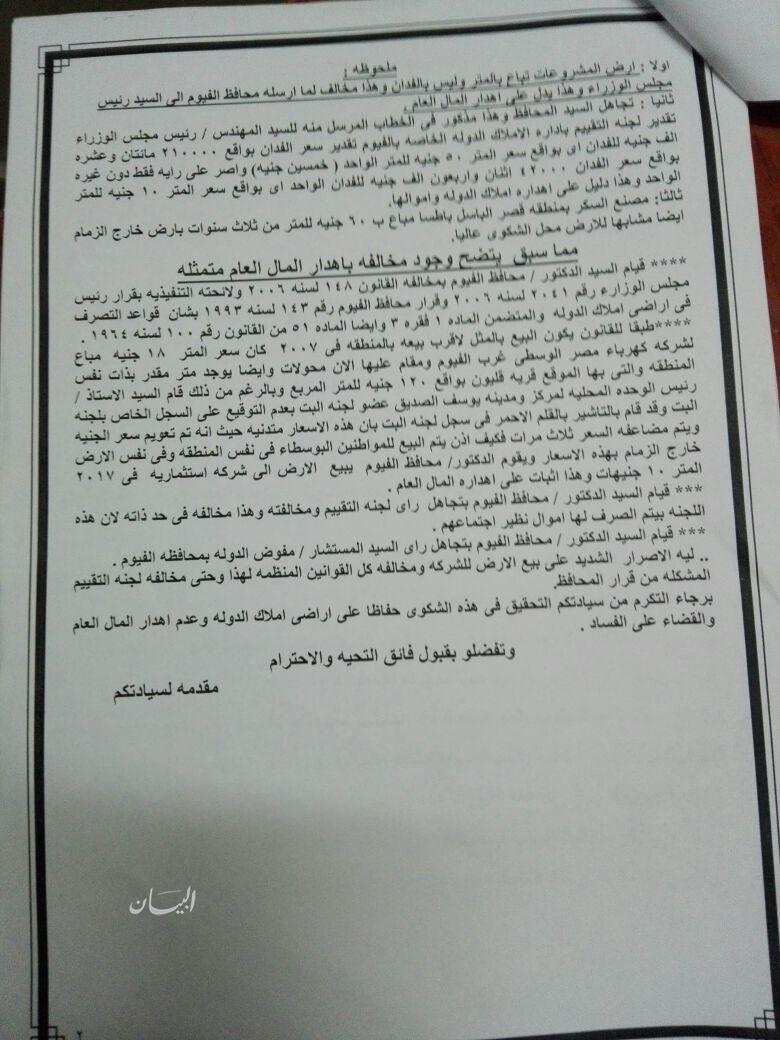 ملحوظه :
اولا : ارض المشروعات تباع بالمتر وليس بالفدان وهذا مخالف لما ارسله محافظ الفيوم الى السيد رئيس
مجلس الوزراء وهذا يدل على اهدار المال العام .
ثانيا : تجاهل السيد المحافظ وهذا مذكور فى الخطاب المرسل منه للسيد المهندس / رئيس مجلس الوزراء
تقدير لجنه التقييم باداره الاملاك الدوله الخاصه بالفيوم تقدير سعر الفدان بواقع ٢١٠٠٠٠ مائتان وعشره
الف جنيه للفدان اى بواقع سعر المتر ٥٠ جنيه للمتر الواحد ( خمسين جنيه) واصر على رايه فقط دون غيره
بواقع سعر الفدان ٤٢٠٠٠ اثنان واربعون الف جنيه للفدان الواحد اى بواقع سعر المتر ١٠ جنيه للمتر
الواحد وهذا دليل على اهداره املاك الدوله واموالها.
ثالثا: مصنع السكر بمنطقه قصر الباسل باطسا مباع ب ٦٠ جنيه للمتر من ثلاث سنوات بارض خارج الزمام
ايضا مشابها للارض محل الشكوى عاليا.
مما سبق يتضح وجود مخالفه باهدار المال العام متمثله
**** قيام السيد الدكتور / محافظ الفيوم بمخالفه القانون ١٤٨ لسنه ٢٠٠٦ ولائحته التنفيذيه بقرار رئيس
مجلس الوزارء رقم ٢٠٤١ لسنه ٢٠٠٦ وقرار محافظ الفيوم رقم ١٤٣ لسنه ١٩٩٣ بشان قواعد التصرف
فى اراضى املاك الدوله والمتضمن الماده ١ فقره ٣ وايضا الماده ٥١ من القانون رقم ١٠٠ لسنه ١٩٦٤ .
****طبقا للقانون يكون البيع بالمثل لاقرب بيعه بالمنطقه فى ٢٠٠٧ كان سعر المتر ١٨ جنيه مباع
لشركه كهرباء مصر الوسطى غرب الفيوم ومقام عليها الان محولات وايضا يوجد متر مقدر بذات نفس
المنطقه والتى بها الموقع قريه قلبون بواقع ١٢٠ جنيه للمتر المربع وبالرغم من ذلك قام السيد الاستاذ /
رئيس الوحده المحليه لمركز ومدينه يوسف الصديق عضو لجنه البت بعدم التوقيع على السجل الخاص بلجنه
البت وقد قام بالتاشير بالقلم الاحمر فى سجل لجنه البت بان هذه الاسعار متدنيه حيث انه تم تعويم سعر الجنيه
ويتم مضاعفه السعر ثلاث مرات فكيف اذن يتم البيع للمواطنين البوسطاء فى نفس المنطقه وفى نفس الارض
خارج الزمام بهذه الاسعار ويقوم الدكتور/ محافظ الفيوم يبيع الارض الى شركه استثماريه فى ٢٠١٧
المتر ١٠ جنيهات وهذا اثبات على اهداره المال العام .
*** قيام السيد الدكتور / محافظ الفيوم بتجاهل راى لجنه التقييم ومخالفته وهذا مخالفه فى حد ذاته لان هذه
اللجنه بيتم الصرف لها اموال نظير اجتماعهم .
*** قيام السيد الدكتور / محافظ الفيوم بتجاهل راى السيد المستشار / مفوض الدوله بمحافظه الفيوم .
.. ليه الاصرار الشديد على بيع الارض للشركه ومخالفه كل القوانين المنظمه لهذا وحتى مخالفه لجنه التقييم
المشكله من قرار المحافظ.
برجاء التكرم من سيادتكم التحقيق فى هذه الشكوى حفاظا على اراضى املاك الدوله وعدم اهدار المال العام
والقضاء على الفساد .
وتفضلو بقبول فائق التحيه والاحترام
مقدمه لسيادتكم
البيان
٢